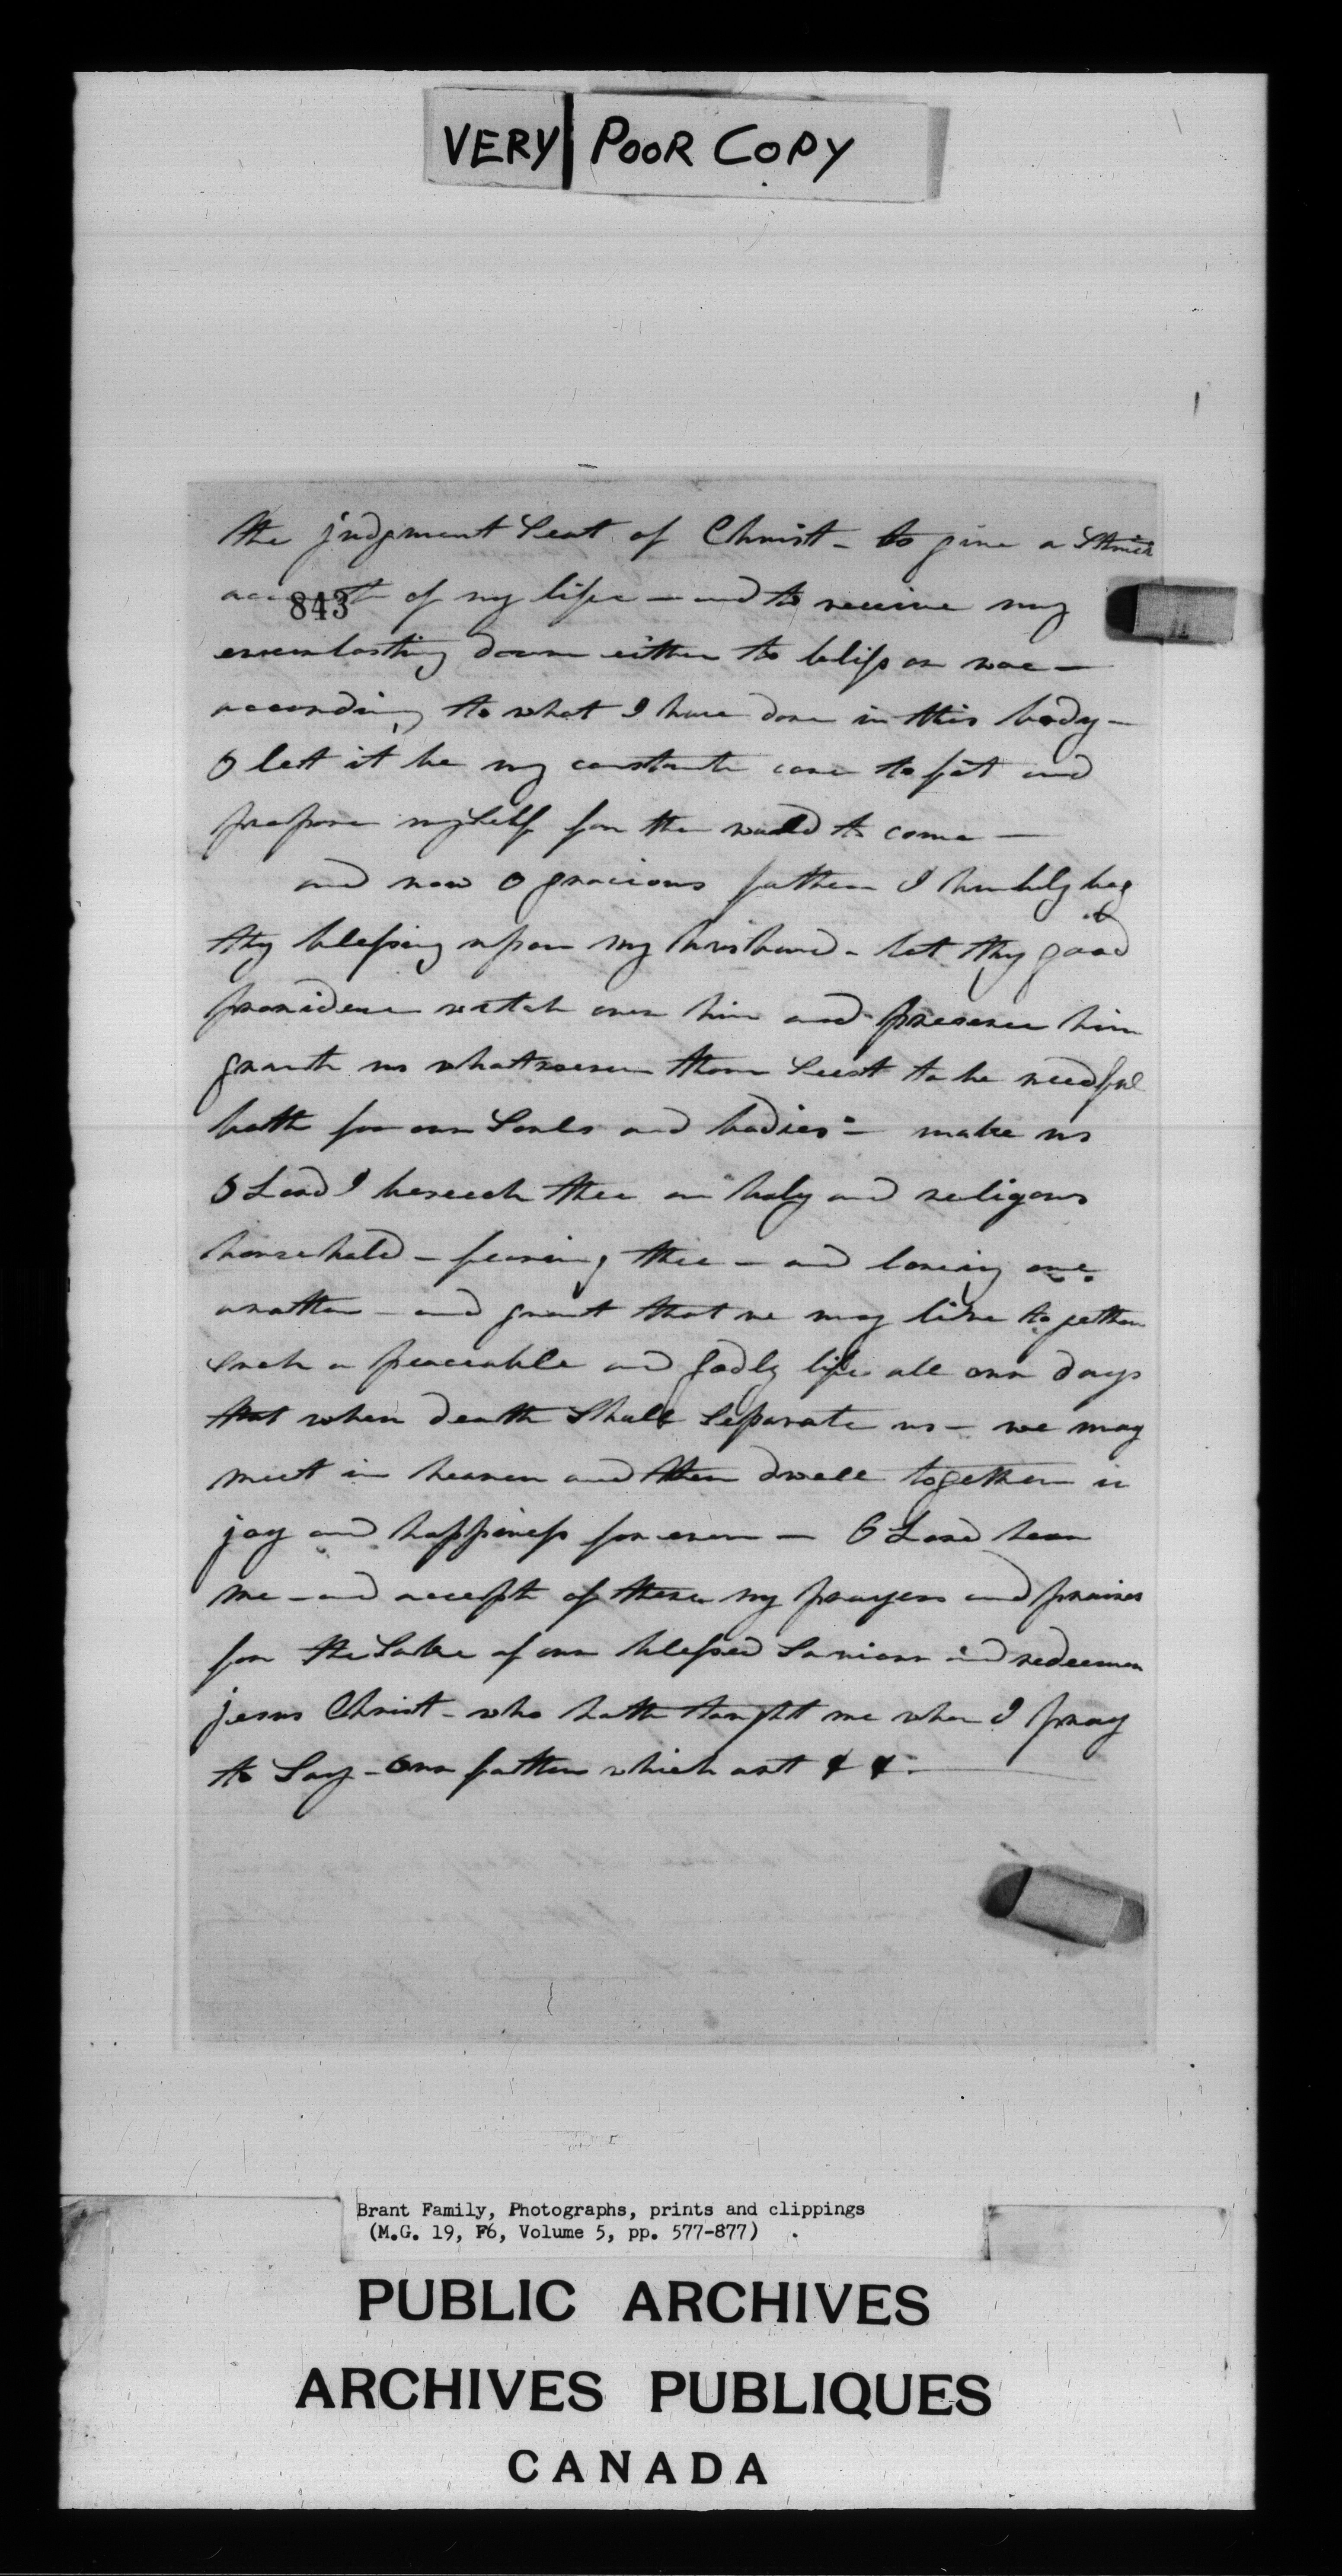 VERY POOR COPY
the judgment Seat of Christ - to give a Strict
843 of my life - and to receive my
everlasting doom either to bliss or woe -
according to what I have done in this body -
O lett it be my constante care to fit and
prepare myself for the world to come -
and now O gracious father I humbly beg
thy blessing upon my husband - let thy good
providence watch over him and preserve him
grante us whatsoever thou Seest to be needful
both for our Souls and bodies - make us
O Lord I beseech thee an holy and religous
household - fearing thee - and loving one
another - and grant that we may live together
such a peaceable and godly life all our days
that when death Shall Separate us - we may
meet in heaven and then dwell together in
joy and happiness for ever - O Lord hear
me - and accept of these my prayers and praises
for the Sake of our blessed Saviour and redeemer
jesus Christ - who hath taught me when I pray
to Say - Our father which art & &.
Brant Family, Photographs, prints and clippings
(M.G. 19, F6, Volume 5, pp. 577-877)
PUBLIC ARCHIVES
ARCHIVES PUBLIQUES
CANADA